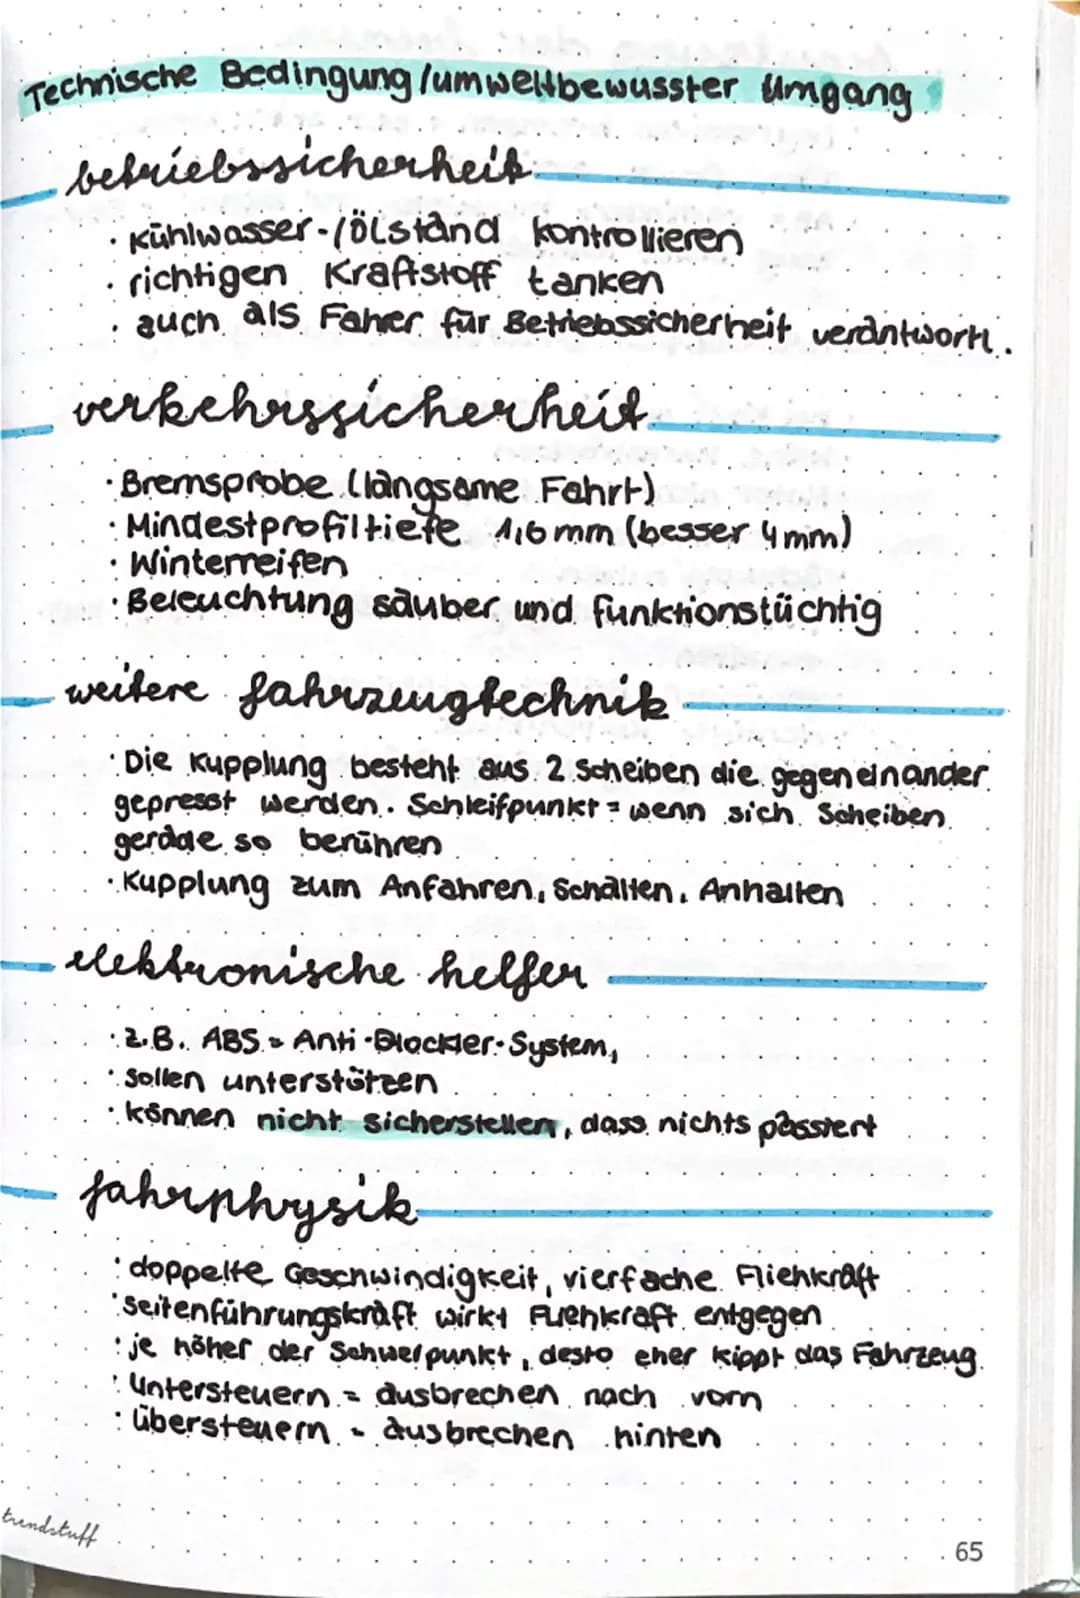 Technische Bedingung/umweltbewusster Umgang
betriebssicherheit
· Kühlwasser-/ölstand kontrollieren
· richtigen Kraftstoff tanken
· auch als Faher für Betriebssicherheit verantwortl.
verkehrssicherheit
· Bremsprobe (langsame Fahrt)
· Mindestprofiltiefe 1,6mm (besser 4mm)
· Winterreifen
· Beleuchtung sauber und funktionstüchtig
weitere fahrzeugtechnik
· Die Kupplung besteht aus 2 Scheiben die gegeneinander
gepresst werden. Schleifpunkt = wenn sich Scheiben
gerdae so berühren
· Kupplung zum Anfahren, Schalten, Anhalten
elektronische helfer
· z.B. ABS = Anti-Blockier-System,
· Sollen unterstützen
· können nicht sicherstellen, dass nichts passiert
fahrphysik
· doppelte Geschwindigkeit, vierfache Fliehkraft
· Seitenführungskraft wirkt Fliehkraft entgegen
· je höher der Schwerpunkt, desto eher kippt das Fahrzeug
· Untersteuern = ausbrechen nach vorn
· übersteuern = ausbrechen hinten
trendstuff
65